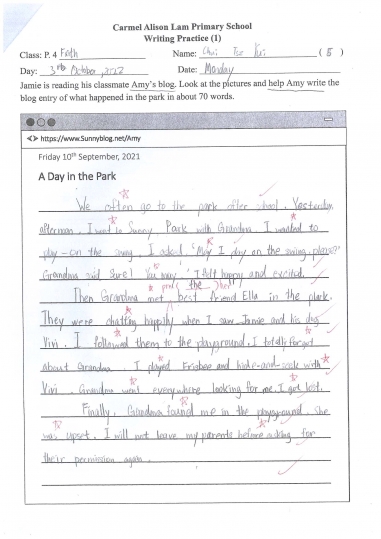 Carmel Alison Lam Primary School
Writing Practice (1)
Class: P. 4 Faith Name: Chui Tsz Kui ( 8 )
Day: 3rd October, 2022 Date: Monday
Jamie is reading his classmate Amy's blog. Look at the pictures and help Amy write the
blog entry of what happened in the park in about 70 words.
<> https://www.Sunnyblog.net/Amy
Friday 10th September, 2021
A Day in the Park
We often go to the park after school. Yesterday
afternoon, I went to Sunny Park with Grandma. I wanted to
play on the swing. I asked "May I play on the swing, please?"
Grandma said Sure! You may." I felt happy and excited.
Then Grandma met best friend Ella in the park.
They were chatting happily when I saw Jamie and his dog
Vivi. I followed them to the playground. I totally forgot
about Grandma. I played Frisbee and hide-and-seek with
Vivi. Grandma went everywhere looking for me. I got lost.
Finally, Grandma found me in the playground. She
was upset. I will not leave my parents before asking for
their permission again.